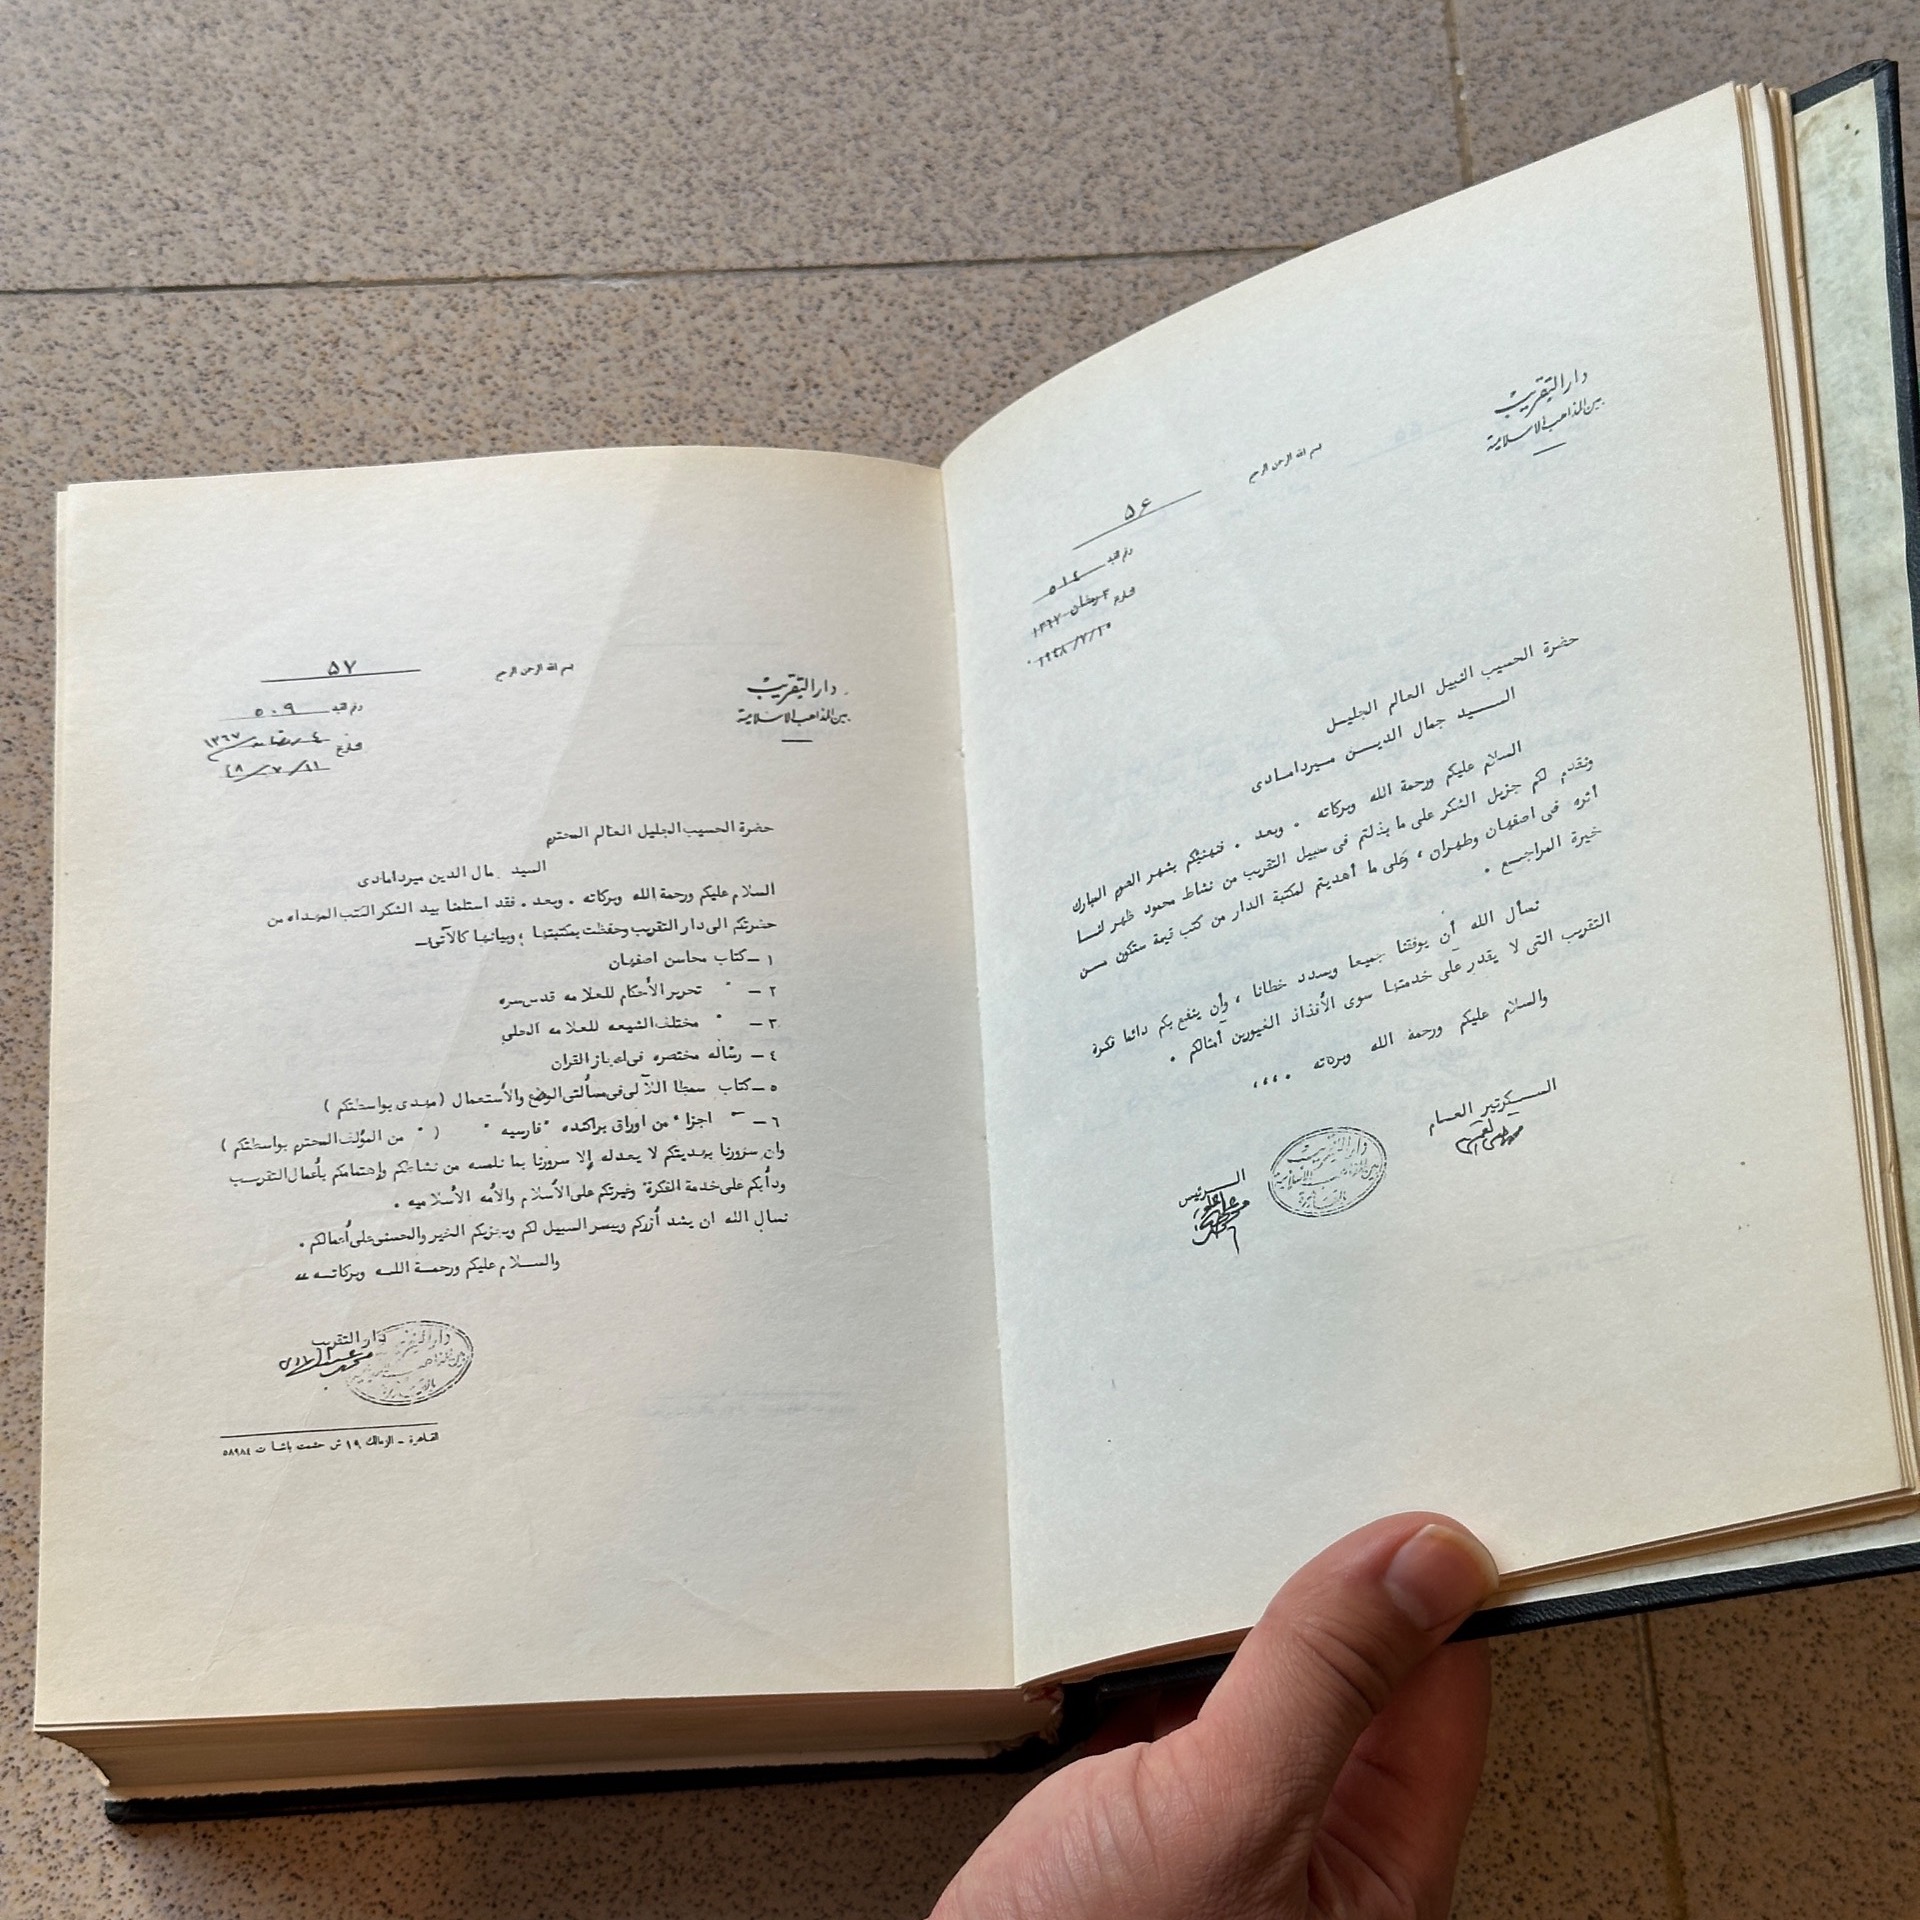 دار التقريب
بين المذاهب الاسلامية
بسم الله الرحمن الرحيم
۵۶
رقم القيد ٥١٤
تاريخ ٣ رمضان ١٣٦٧
١٩٤٨/٧/١٠
حضرة الحسيب النبيل العالم الجليل
السيد جمال الدين ميردامادى
السلام عليكم ورحمة الله وبركاته . وبعد . فنهنئكم بشهر الصوم المبارك
ونقدم لكم جزيل الشكر على ما بذلتم فى سبيل التقريب من نشاط محمود ظهر لنا
أثره فى اصفهان وطهران ، وعلى ما أهديتم لمكتبة الدار من كتب قيمة ستكون من
خيرة المراجع .
نسأل الله أن يوفقنا جميعا ويسدد خطانا ، وأن ينفع بكم دائما فكرة
التقريب التى لا يقدر على خدمتها سوى الأفذاذ الغيورين أمثالكم .
والسلام عليكم ورحمة الله وبركاته . ،،،
السكرتير العام
الرئيس
دار التقريب
بين المذاهب الاسلامية
بالقاهرة
دار التقريب
بين المذاهب الاسلامية
بسم الله الرحمن الرحيم
۵۷
رقم القيد ٥٠٩
تاريخ ٤ رمضان ١٣٦٧
١١/٧/٤٨
حضرة الحسيب الجليل العالم المحترم
السيد مال الدين ميردامادى
السلام عليكم ورحمة الله وبركاته . وبعد . فقد استلمنا بيد الشكر الكتب المهداه من
حضرتكم الى دار التقريب وحفظت بمكتبتها ؛ وبيانها كالآتى :ـ
١ ـ كتاب محاسن اصفهان
٢ ـ " تحرير الأحكام للعلامه قدس سره
٣ ـ " مختلف الشيعه للعلامه الحلى
٤ ـ رساله مختصره فى اعجاز القران
٥ ـ كتاب سمطا اللآلى فى مسألتى الوضع والأستعمال (مهدى بواسطتكم )
٦ ـ " اجزا" من اوراق براكنده "فارسيه " ( " من المؤلف المحترم بواسطتكم )
وان سرورنا بهديتكم لا يعدله إلا سرورنا بما نلمسه من نشاطكم وإهتمامكم بأعمال التقريب
ودأبكم على خدمة الفكرة وغيرتكم على الأسلام والأمه الأسلاميه .
نسال الله ان يشد أزركم وييسر السبيل لكم ويجزيكم الخير والحسنى على أعمالكم .
والسلام عليكم ورحمة الله وبركاته ،،
دار التقريب
دار التقريب
بين المذاهب الاسلامية
بالقاهرة
القاهرة ـ الزمالك ١٩ ش حشمت باشا ت ٥٨٩٨٤